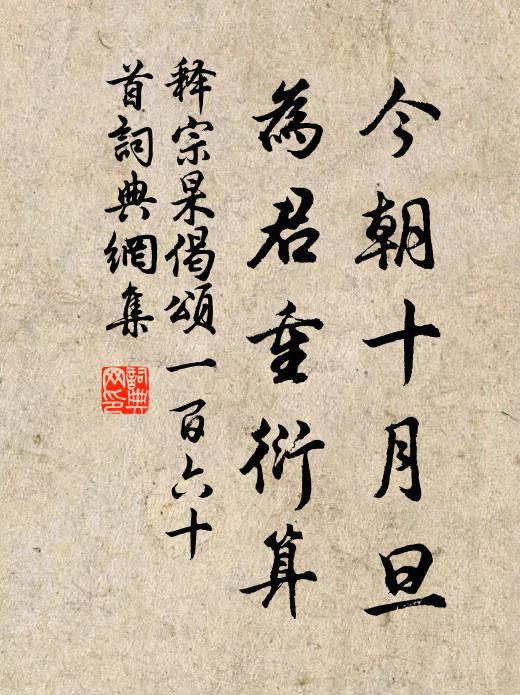 今朝十月旦
為君重衍算
释宗杲偈頌一百六十
首詞典網集
詞典網印